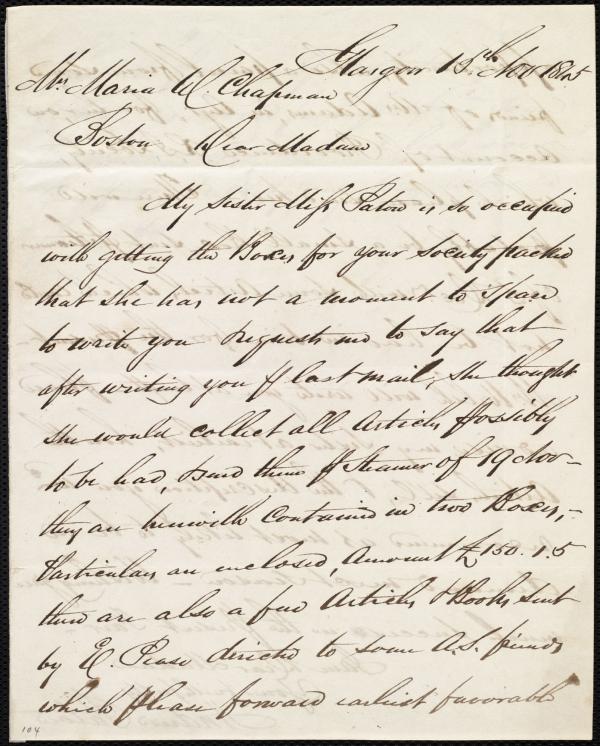 Glasgow 15th Nov 1845
Mrs Maria W. Chapman
Boston Dear Madam
My Sister Miss Paton is so occupied
with getting the Boxes for your Society packed
that she has not a moment to spare
to write you & requests me to say that
after writing you p last mail, she thought
she would collect all Articles possibly
to be had, & send them p Steamer of 19 Nov –
they are herewith contained in two Boxes, –
Particulars are enclosed, Amount £150.1.5
there are also a few Articles & Books sent
by E. Pease directed to some A.S. friends
which please forward earliest favorable
104